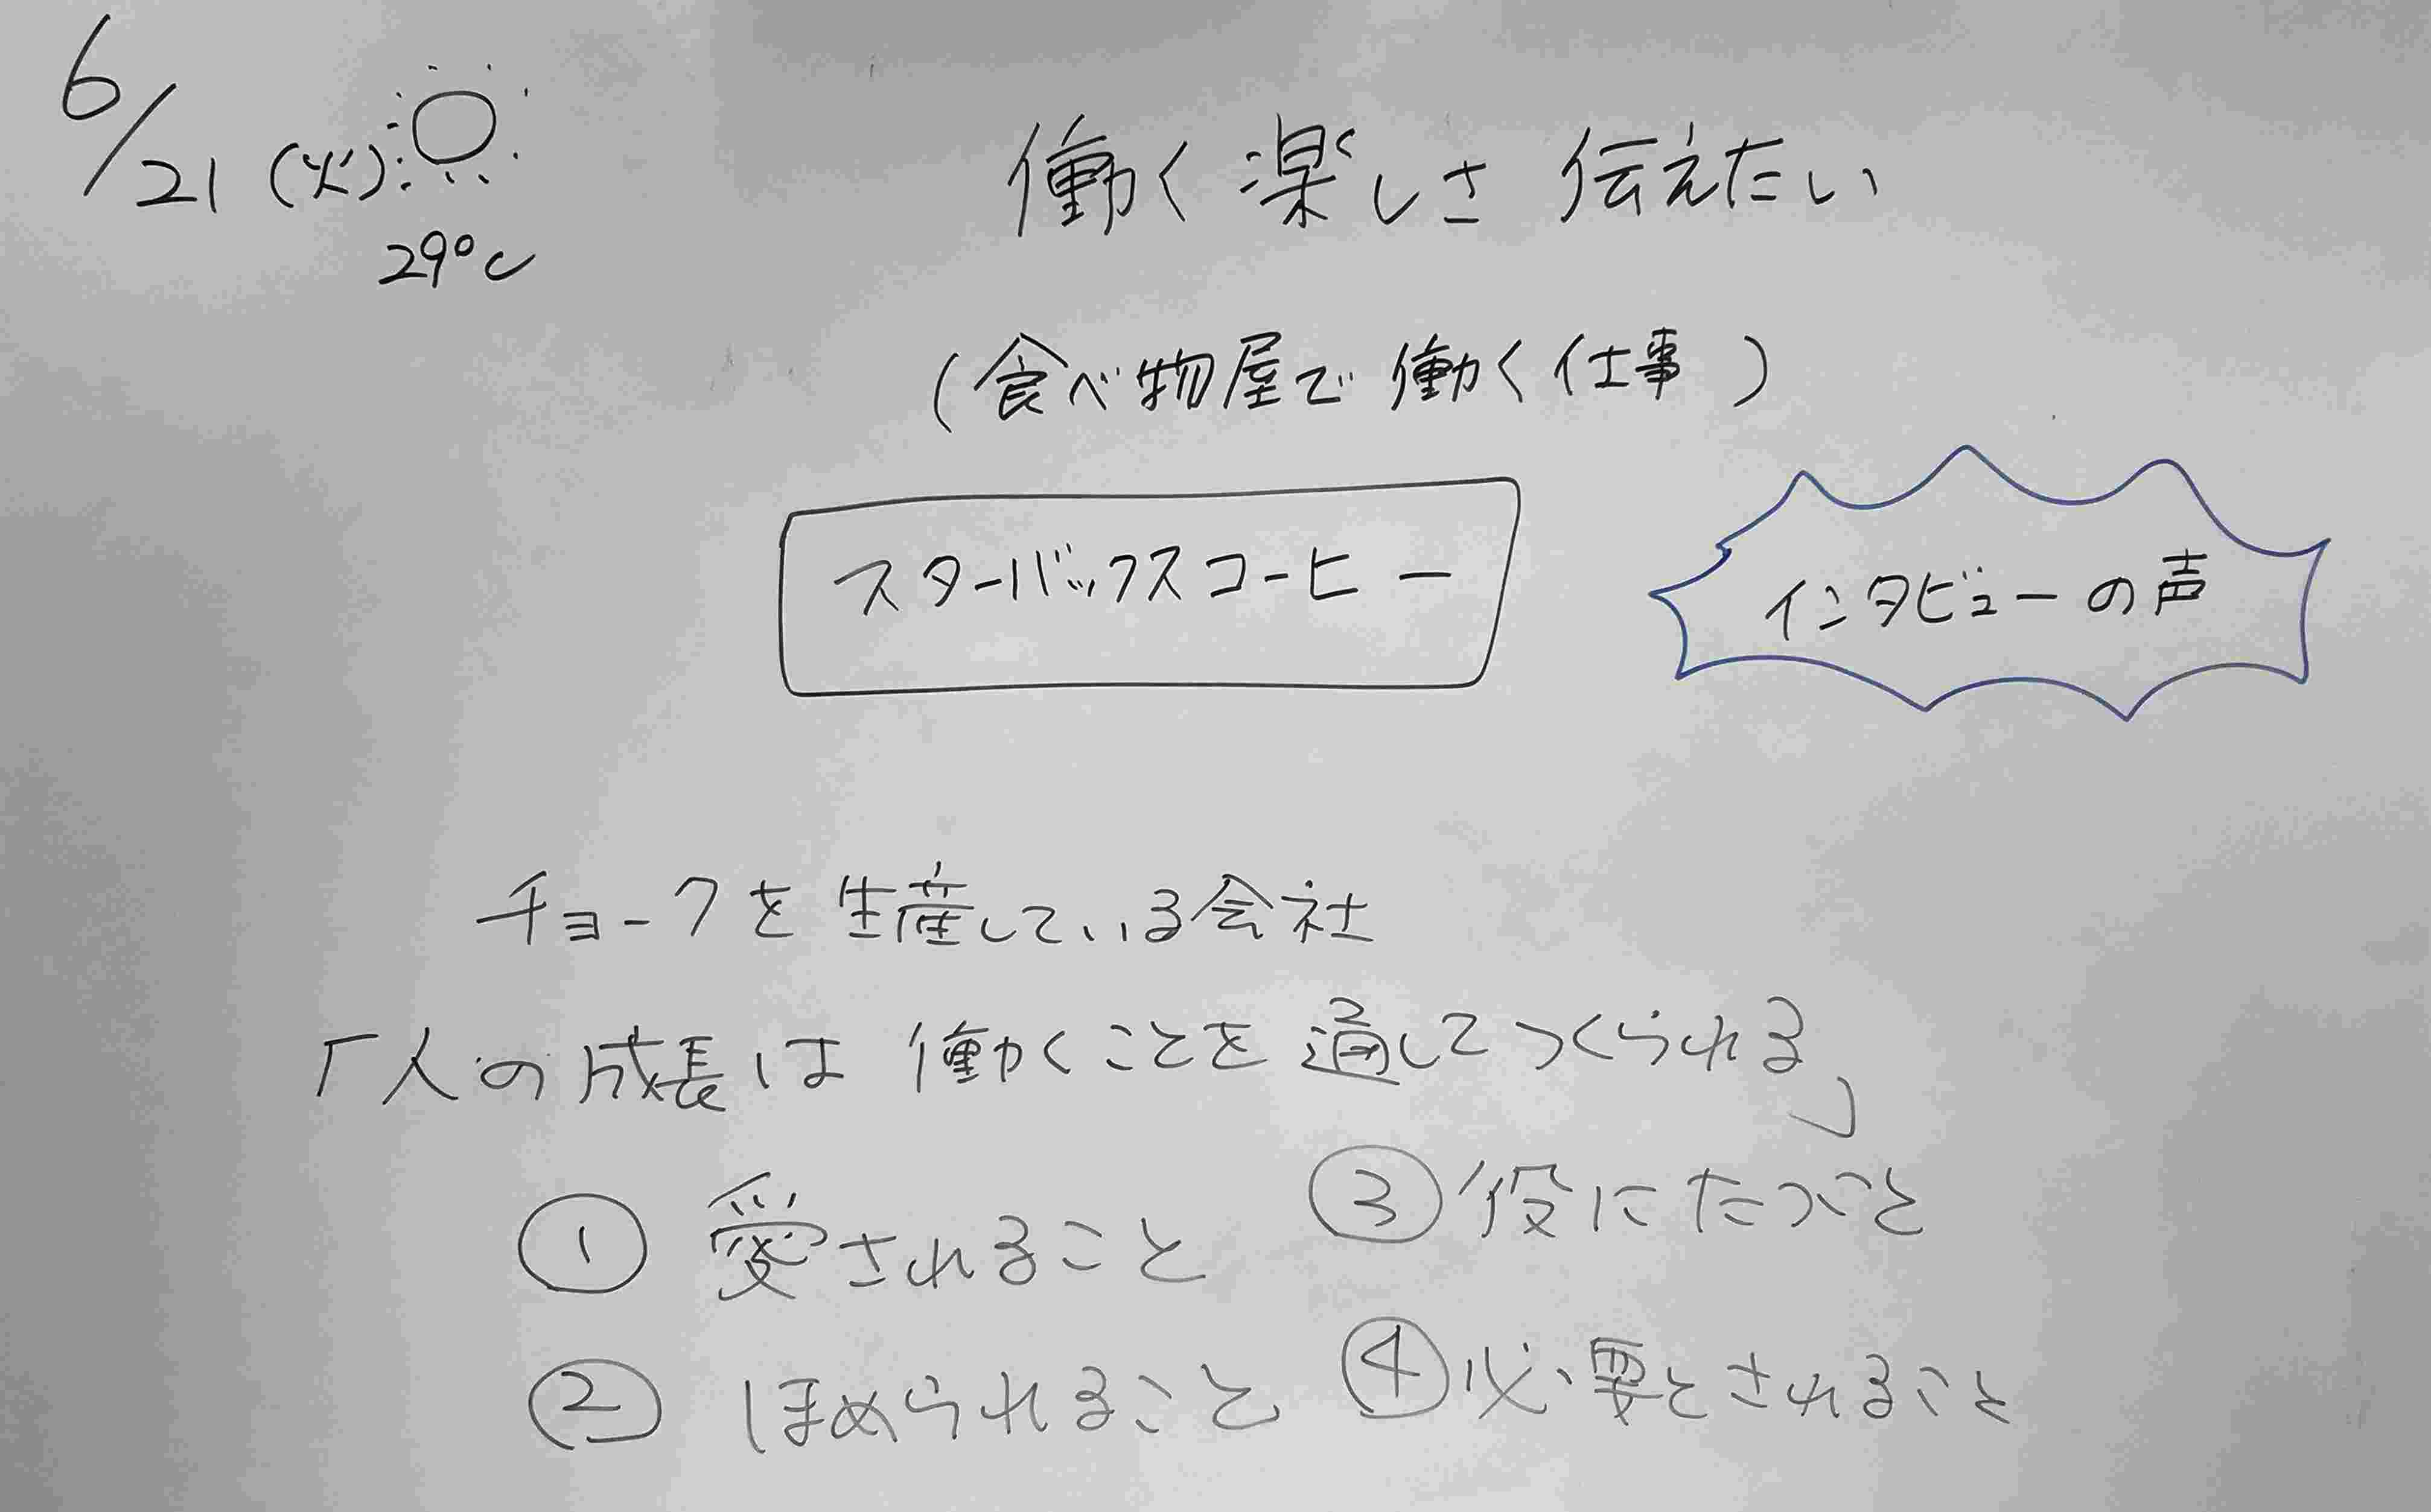 6/21 (火)
29℃
働く楽しさ 伝えたい
(食べ物屋で働く仕事)
スターバックスコーヒー
インタビューの声
チョークを生産している会社
「人の成長は 働くことを通してつくられる」
① 愛されること
② ほめられること
③ 役にたつこと
④ 必要とされること